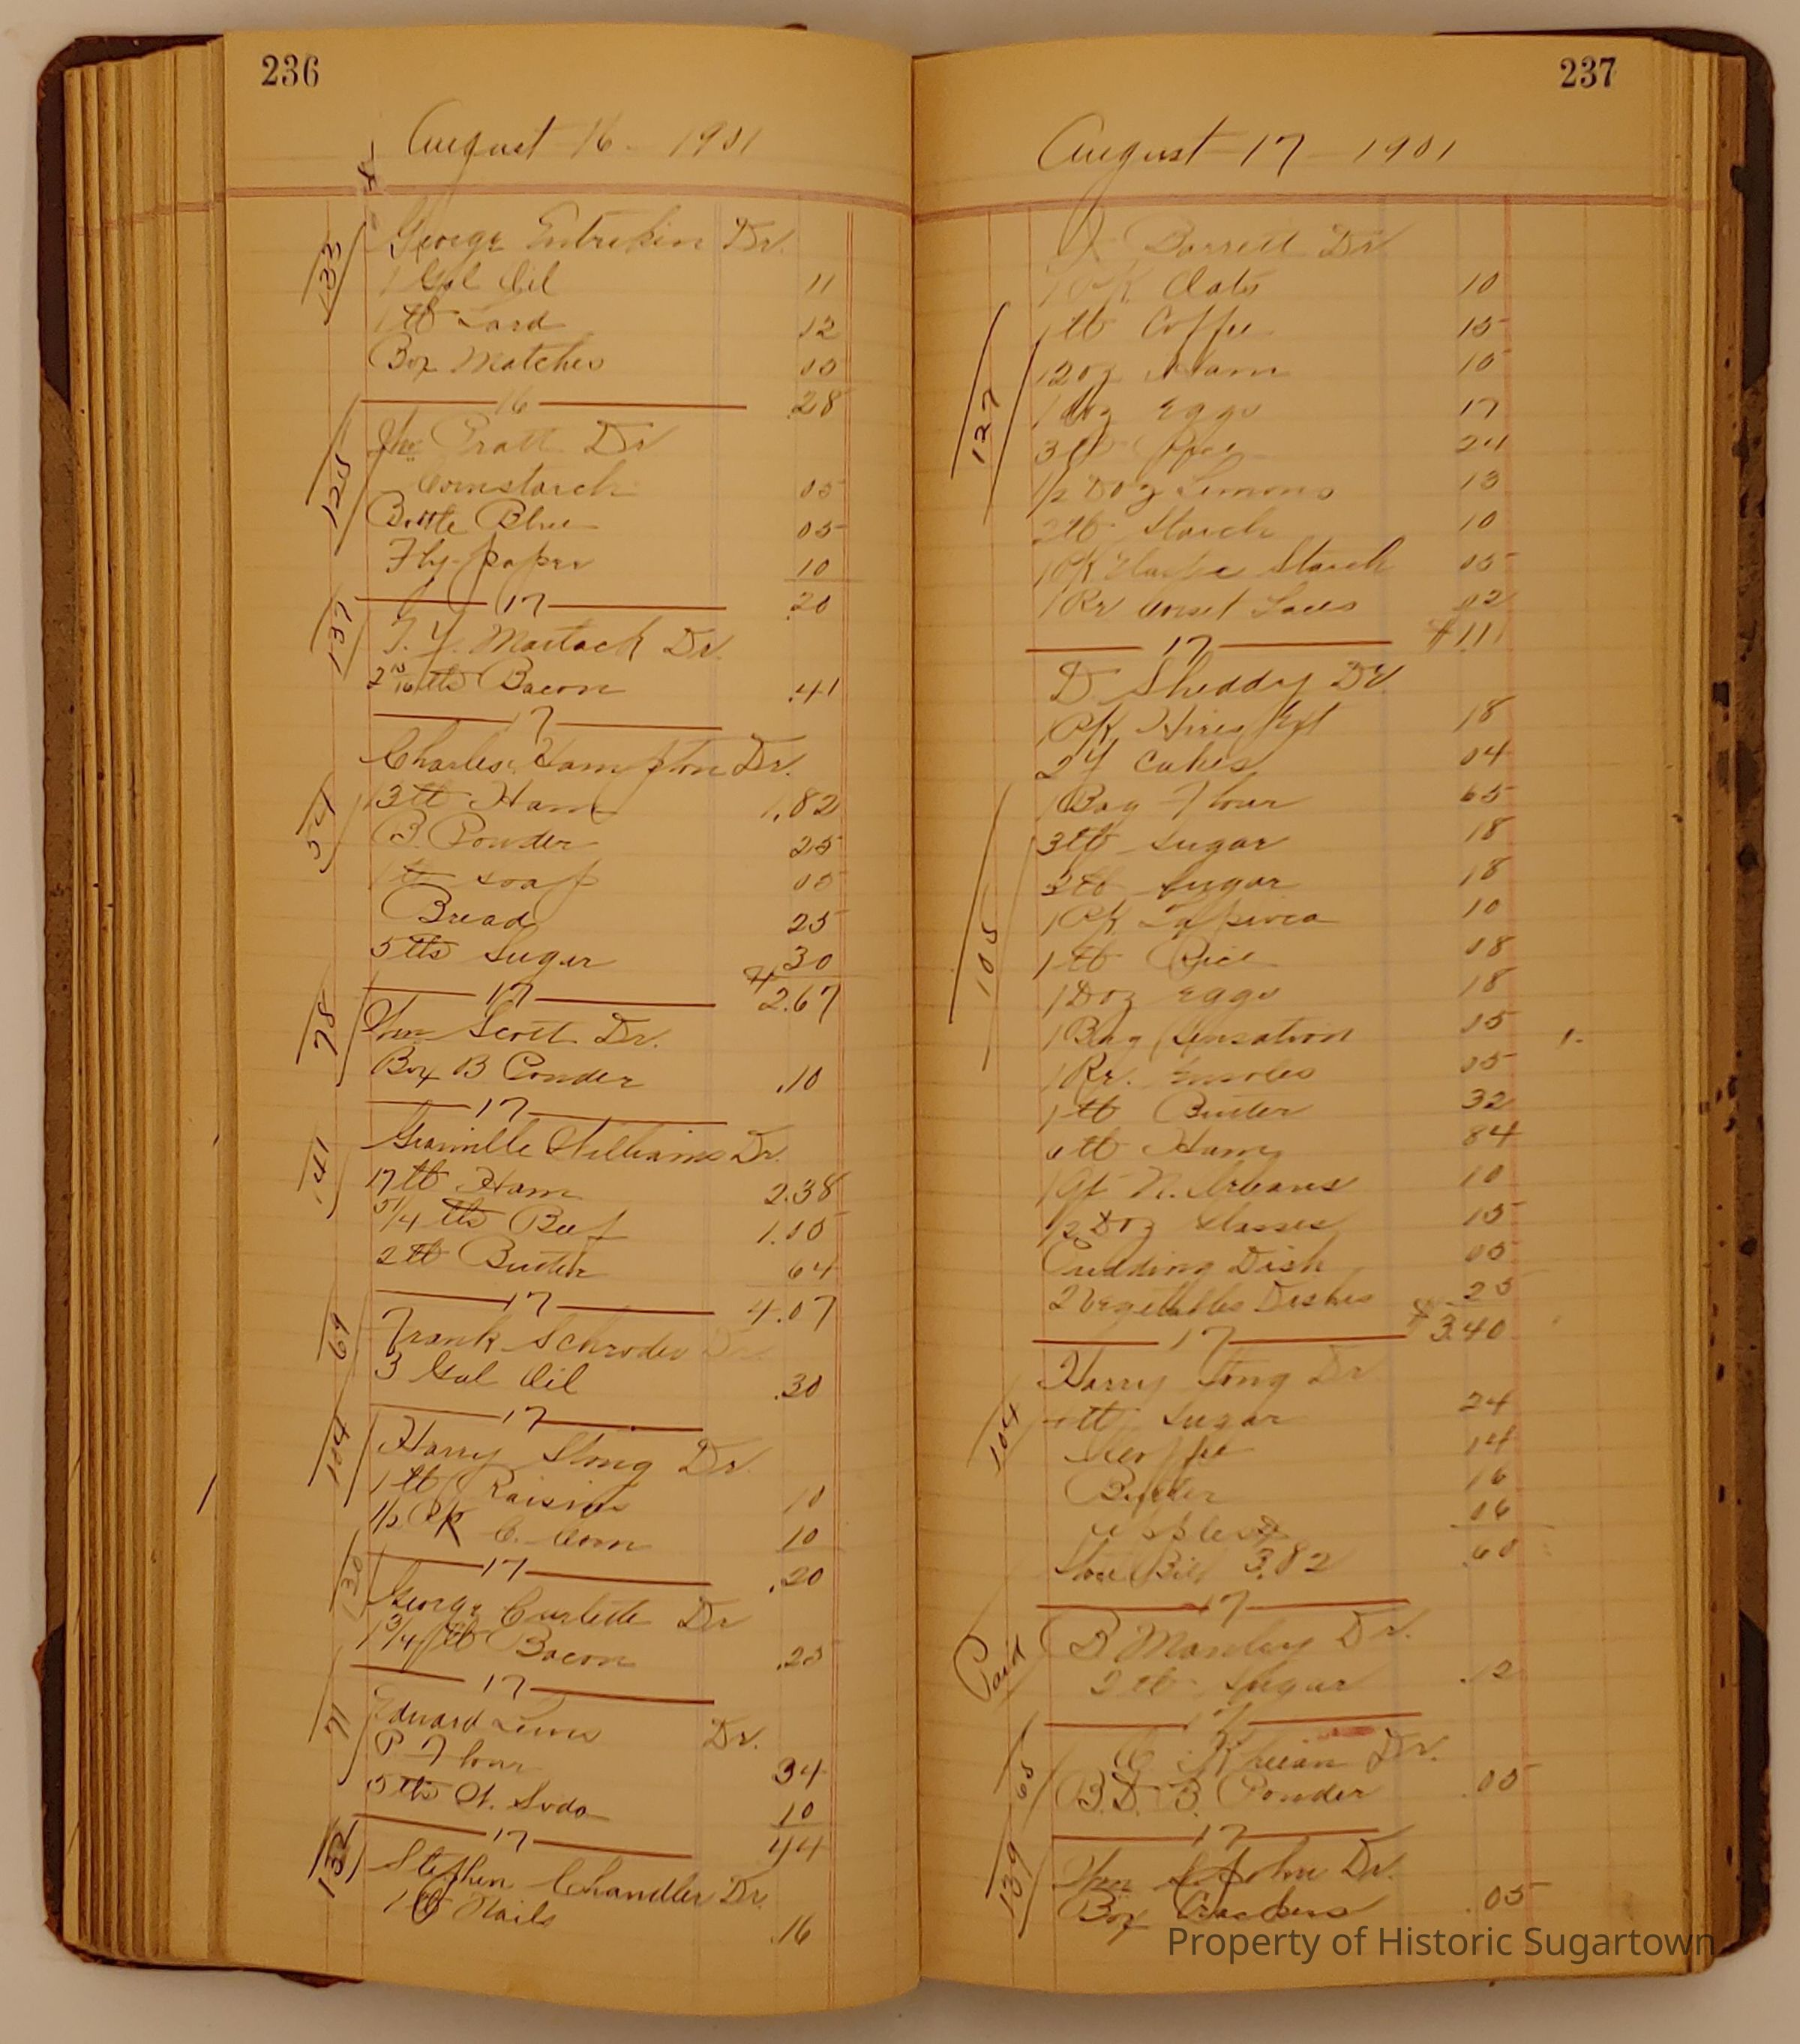 236
August 16 - 1901
133
George Entrekin Dr.
1 Gal Oil 11
1 lb Lard .12
Box Matches 05
16 .28
125
Jno Pratt Dr
Cornstarch 05
Bottle Blue 05
Fly paper 10
17 .20
137
T. Y. Dr.
2 10/16 lbs Bacon .41
17
54
Charles Hampton Dr.
13 lb Ham 1.82
B. Powder 25
1 lb soap 05
Bread 25
5 lbs Sugar 30
17 2.67
78
Wm Scott Dr.
Box B Powder .10
17
141
Granville Williams Dr.
17 lb Ham 2.38
5 1/4 lbs Beef 1.05
2 lb Butter 64
17 4.07
69
Frank Schroder Dr.
3 Gal Oil .30
17
104
Harry Stong Dr.
1 lb Raisins 10
1/2 Pk C. Corn 10
17 .20
130
George Dr
1 3/4 lb Bacon .25
17
71
Edward Lewis Dr.
P Flour 34
5 lbs W. Soda 10
17 44
132
Stephen Chandler Dr.
1 lb Nails .16
237
August 17 - 1901
127
Barrett Dr
1 PK Oats 10
1 lb Coffee 15
12 oz Ham 10
1 doz Eggs 17
3 lb 24
1/2 Doz Lemons 13
2 lb Starch 10
1 PK Elastic Starch 05
1 Pr Corset Laces 02
17 $1.11
105
D Sheddy Dr
1 PK Hires Ext 18
2 Y Cakes 04
1 Bag Flour 65
3 lb Sugar 18
3 lb Sugar 18
1 PK Tapioca 10
1 lb Rice 08
1 Doz Eggs 18
1 Bag Sensation 15
1 Pr. Insoles 05
1 lb Butter 32
6 lb Ham 84
1 Qt N. Orleans 10
1/2 Doz Glasses 15
Pudding Dish 05
2 Vegetables Dishes 25
17 $3.40
104
Harry Stong Dr
4 lb Sugar 24
Coffee 14
Butter 16
Apples 06
Store Bill 3.82 .60
17
Paid
B Manley Dr.
2 lb Sugar .12
17
65
Dr.
B.D. B. Powder .05
17
139
Wm St John Dr.
Box Crackers .05
Property of Historic Sugartown